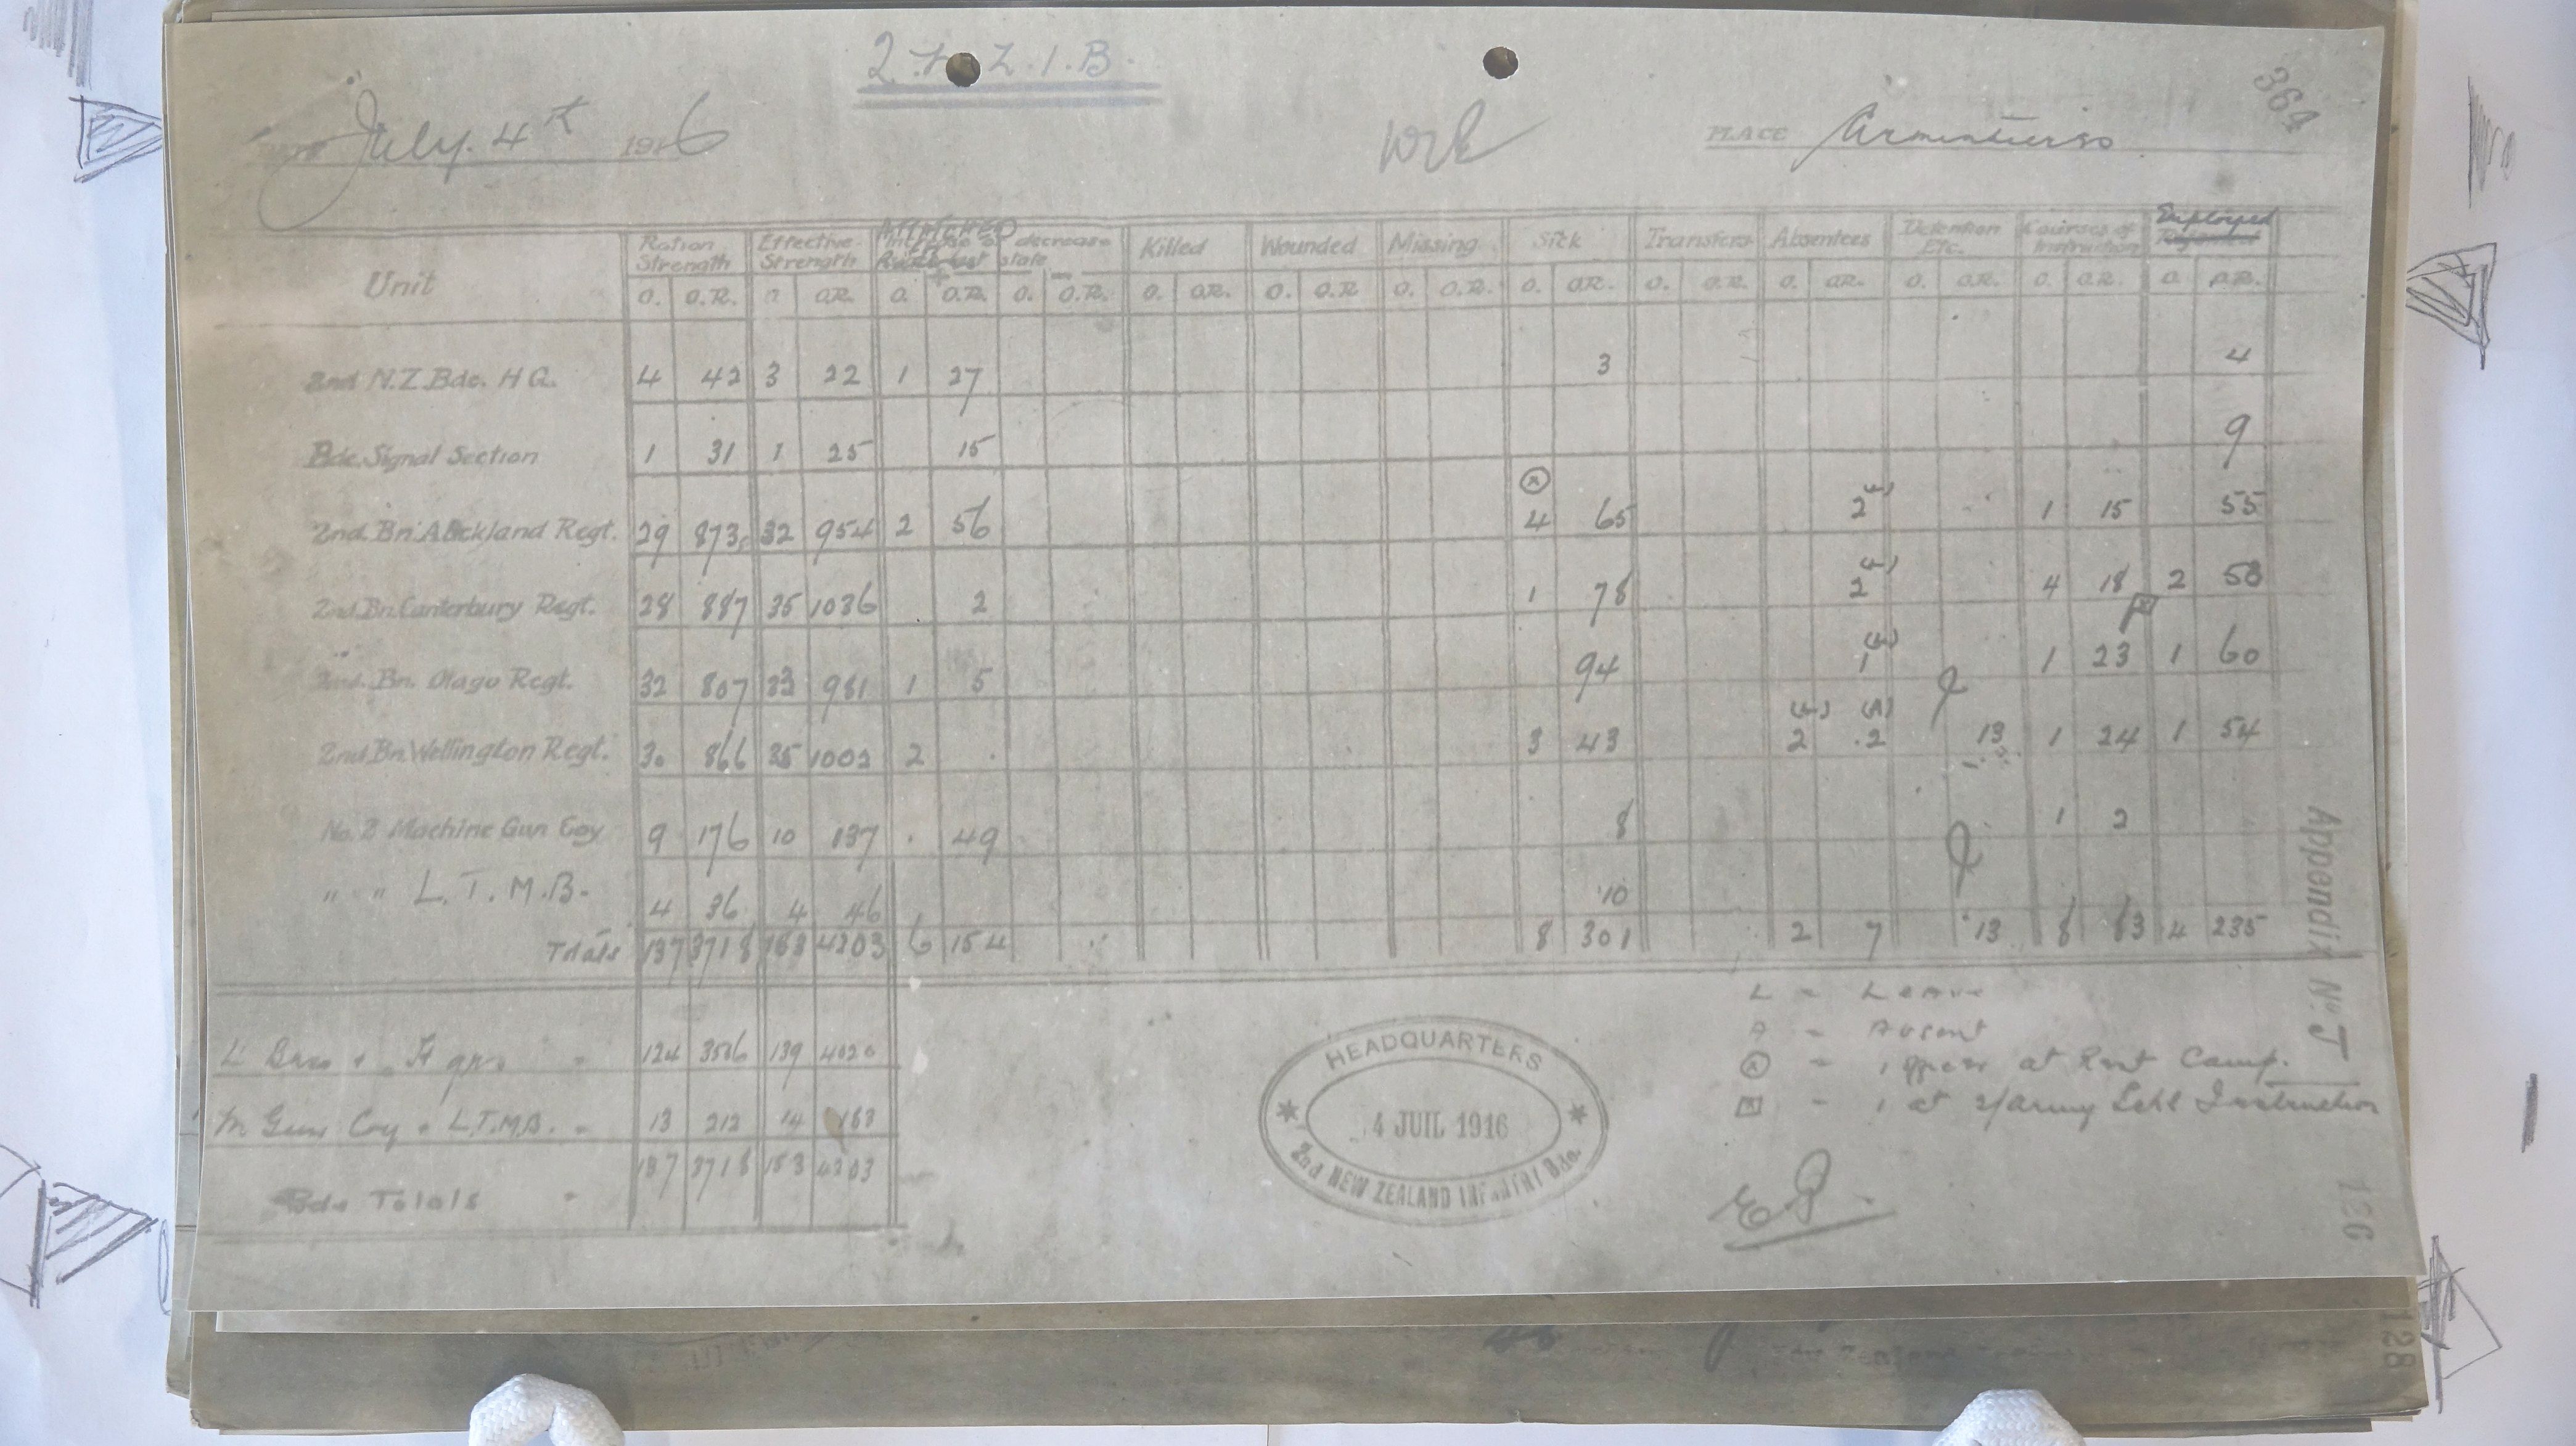 2. N. Z. I. B.
364
July. 4th 1916
PLACE Armentieres
Unit Ration Strength Effective Strength ATTACHED Increase or decrease state Killed Wounded Missing Sick Transfers Absentees Detention Etc. Courses of Instruction Employed
+ -
O. O.R. O. O.R. O. O.R. O. O.R. O. O.R. O. O.R. O. O.R. O. O.R. O. O.R. O. O.R. O. O.R. O. O.R. O. O.R.
2nd N.Z. Bde. H Q. 4 42 3 22 1 27 3 4
Bde. Signal Section 1 31 1 25 15 9
2nd. Bn. Auckland Regt. 29 873 32 954 2 56 (A) 4 65 2 (L) 1 15 55
2nd. Bn. Canterbury Regt. 28 887 35 1036 2 1 78 2 (L) 4 18 2 53
2nd. Bn. Otago Regt. 32 807 33 981 1 5 94 1 (L) 1 23 1 60
2nd. Bn. Wellington Regt. 30 866 35 1002 2 3 43 (L) 2 (A) 2 13 1 24 1 54
No. 2 Machine Gun Coy 9 176 10 137 49 8 1 2
" " L. T. M. B. 4 36 4 46 10
Totals 137 3718 153 4203 6 154 8 301 2 7 13 8 83 4 235
124 3506 139 4020
M Gun Coy & L.T.M.B. 13 212 14 183
Bde Totals 137 3718 153 4203
L - Leave
A - Absent
(A) - 1 officer at Rest Camp.
- 1 at 2/Army Schl Instruction
HEADQUARTERS
4 JUIL 1916
2nd NEW ZEALAND INFANTRY Bde.
Appendix No J
126
128